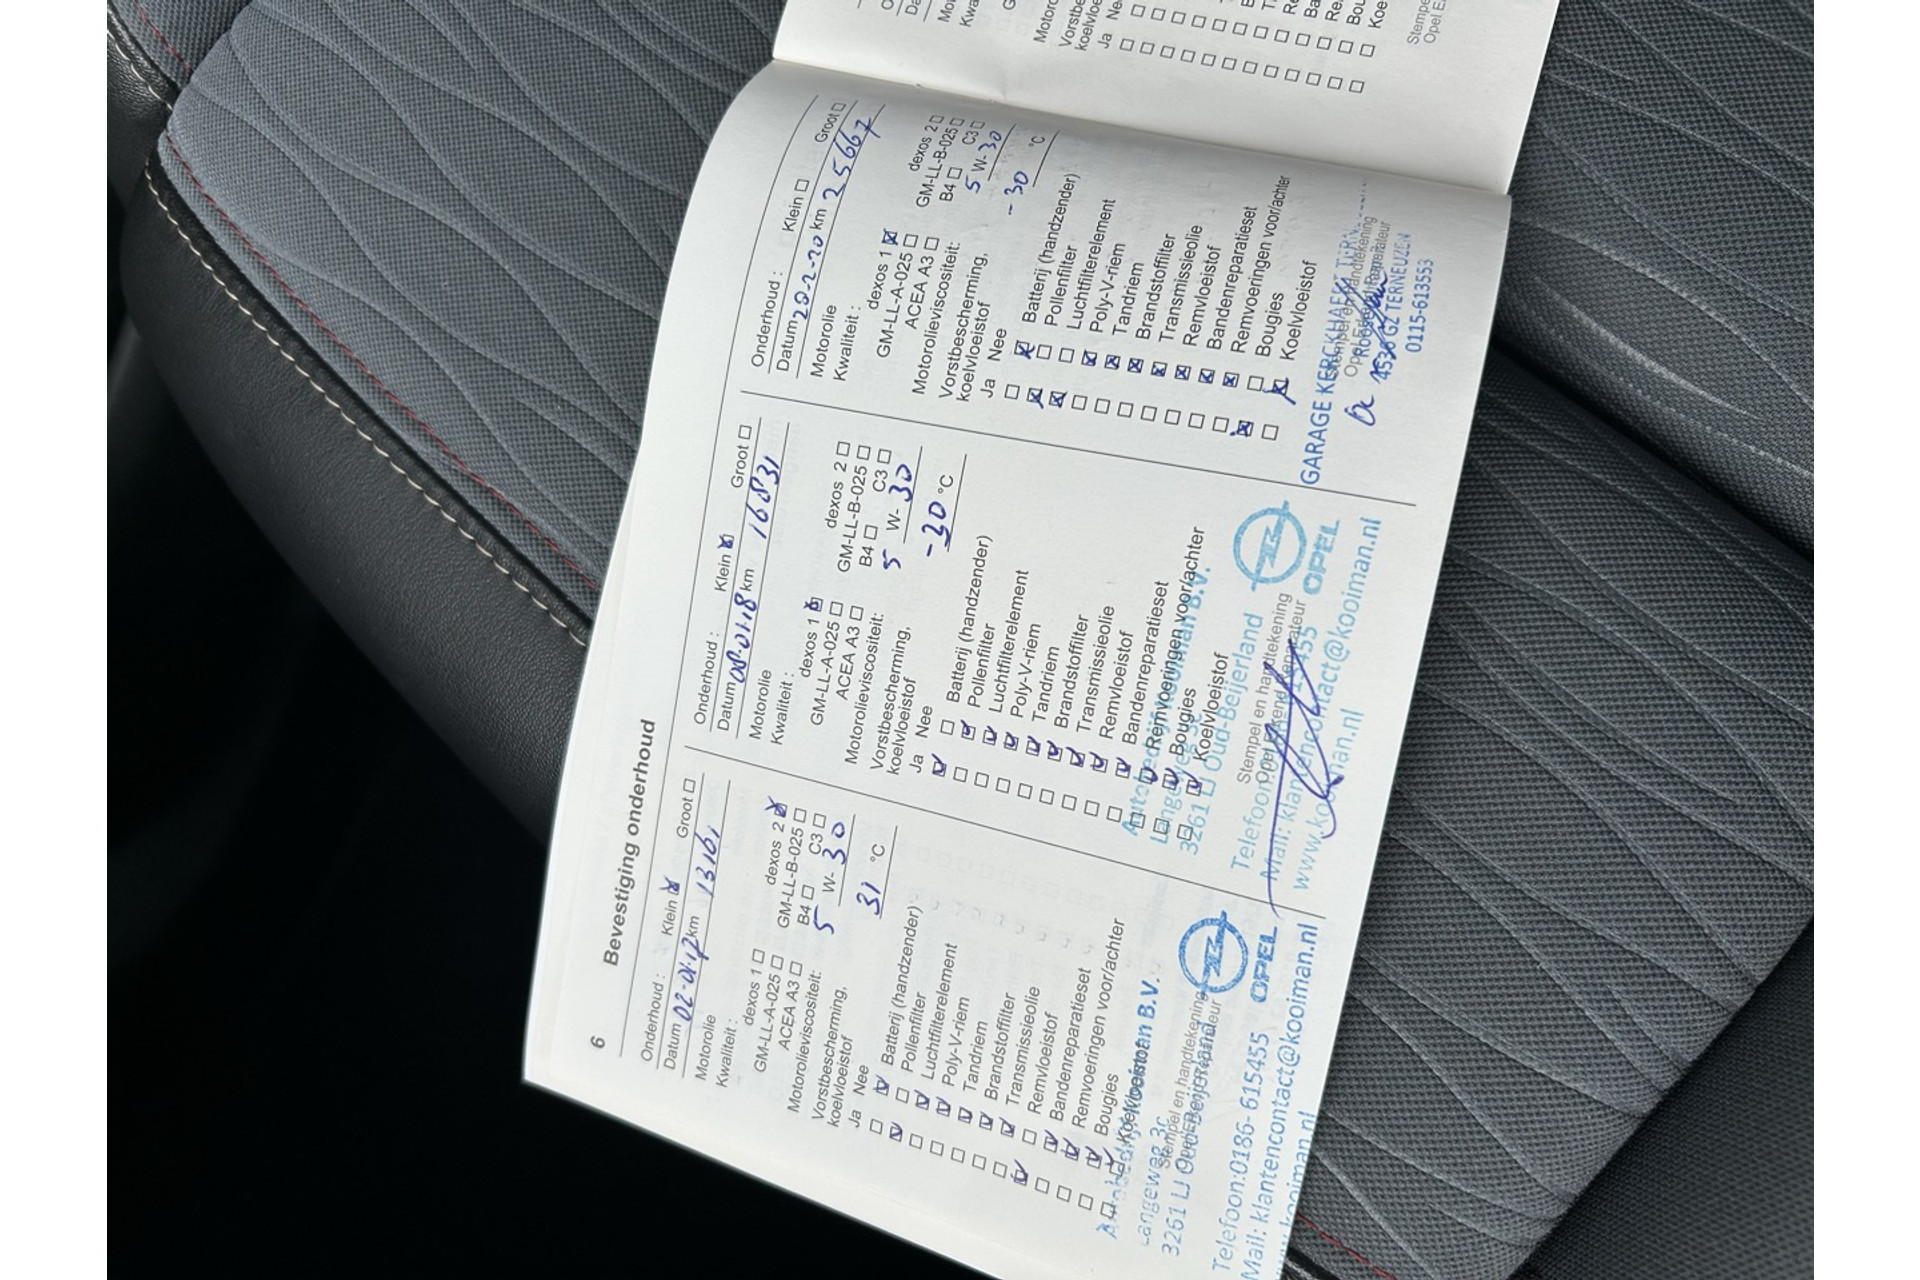 6 Bevestiging onderhoud
Onderhoud : Klein Groot
Datum 02-01-17 km 1316,
Motorolie
Kwaliteit :
dexos 1 dexos 2
GM-LL-A-025 GM-LL-B-025
ACEA A3 B4 C3
Motorolieviscositeit: 5 W- 30
Vorstbescherming,
koelvloeistof 31 °C
Ja Nee
Batterij (handzender)
Pollenfilter
Luchtfilterelement
Poly-V-riem
Tandriem
Brandstoffilter
Transmissieolie
Remvloeistof
Bandenreparatieset
Remvoeringen voor/achter
Bougies
Koelvloeistof
Stempel en handtekening
Langeweg 3c
3261 LJ Oud-Beijerland
OPEL
Telefoon:0186- 615455
Mail: klantencontact@kooiman.nl
Onderhoud : Klein Groot
Datum 08-01-18 km 16831
Motorolie
Kwaliteit :
dexos 1 dexos 2
GM-LL-A-025 GM-LL-B-025
ACEA A3 B4 C3
Motorolieviscositeit: 5 W- 30
Vorstbescherming,
koelvloeistof -30 °C
Ja Nee
Batterij (handzender)
Pollenfilter
Luchtfilterelement
Poly-V-riem
Tandriem
Brandstoffilter
Transmissieolie
Remvloeistof
Bandenreparatieset
Remvoeringen voor/achter
Bougies
Koelvloeistof
3261 LJ Oud-Beijerland
Stempel en handtekening
OPEL
Mail: klantencontact@kooiman.nl
www.kooiman.nl
Onderhoud : Klein Groot
Datum 20-2-20 km 25667
Motorolie
Kwaliteit :
dexos 1 dexos 2
GM-LL-A-025 GM-LL-B-025
ACEA A3 B4 C3
Motorolieviscositeit: 5 W- 30
Vorstbescherming,
koelvloeistof -30 °C
Ja Nee
Batterij (handzender)
Pollenfilter
Luchtfilterelement
Poly-V-riem
Tandriem
Brandstoffilter
Transmissieolie
Remvloeistof
Bandenreparatieset
Remvoeringen voor/achter
Bougies
Koelvloeistof
GARAGE KERCKHAERT
GZ TERNEUZEN
0115-613553
Ja